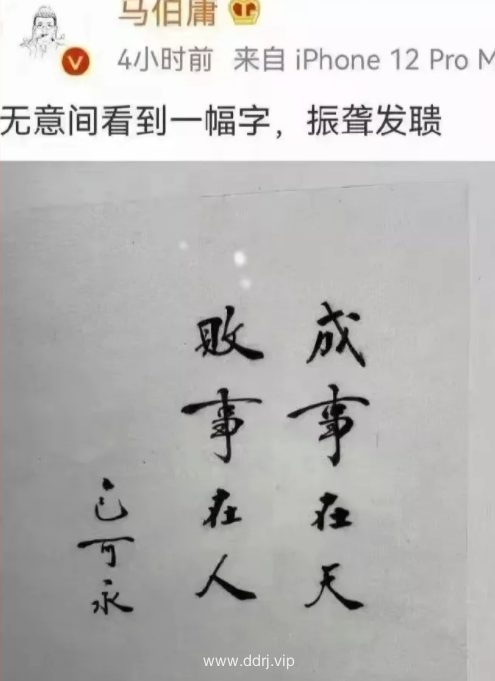 马伯庸
4小时前 来自 iPhone 12 Pro M
无意间看到一幅字，振聋发聩
成事在天
敗事在人
可永
www.ddrj.vip